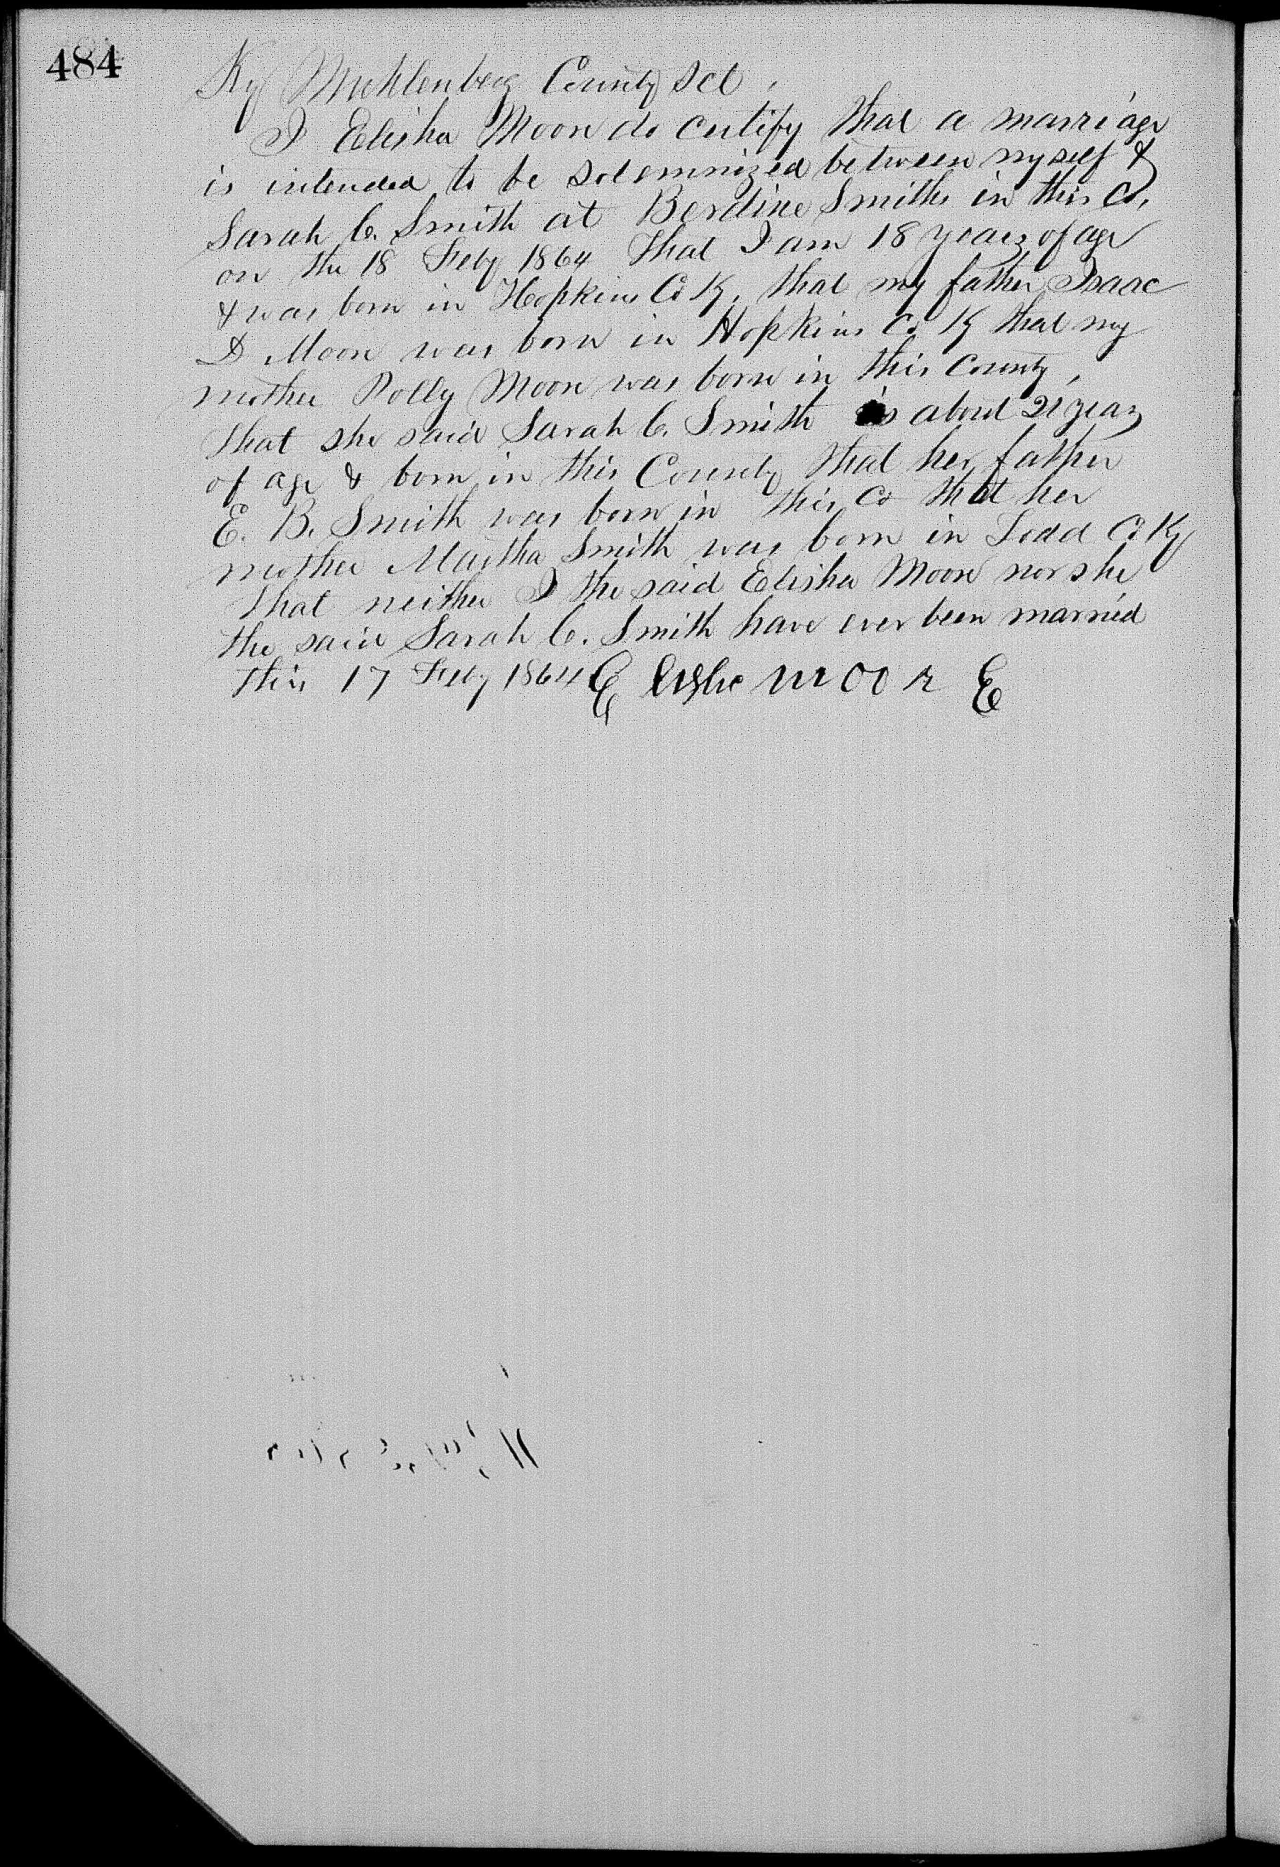 484
Ky Muhlenberg County Sct.
I Elisha Moore do certify that a marriage
is intended to be solemnized between myself &
Sarah C. Smith at Berdine Smiths in this Co.
on the 18 Feby 1864 That I am 18 years of age
& was born in Hopkins Co K. that my father Isaac
D Moore was born in Hopkins Co K that my
mother Polly Moore was born in this County,
That she said Sarah C. Smith is about 21 years
of age & born in this County that her father
E. B. Smith was born in this Co that her
mother Martha Smith was born in Todd Co Ky
That neither I the said Elisha Moore nor she
the said Sarah C. Smith have ever been married
this 17 Feby 1864 Elishe mooRE